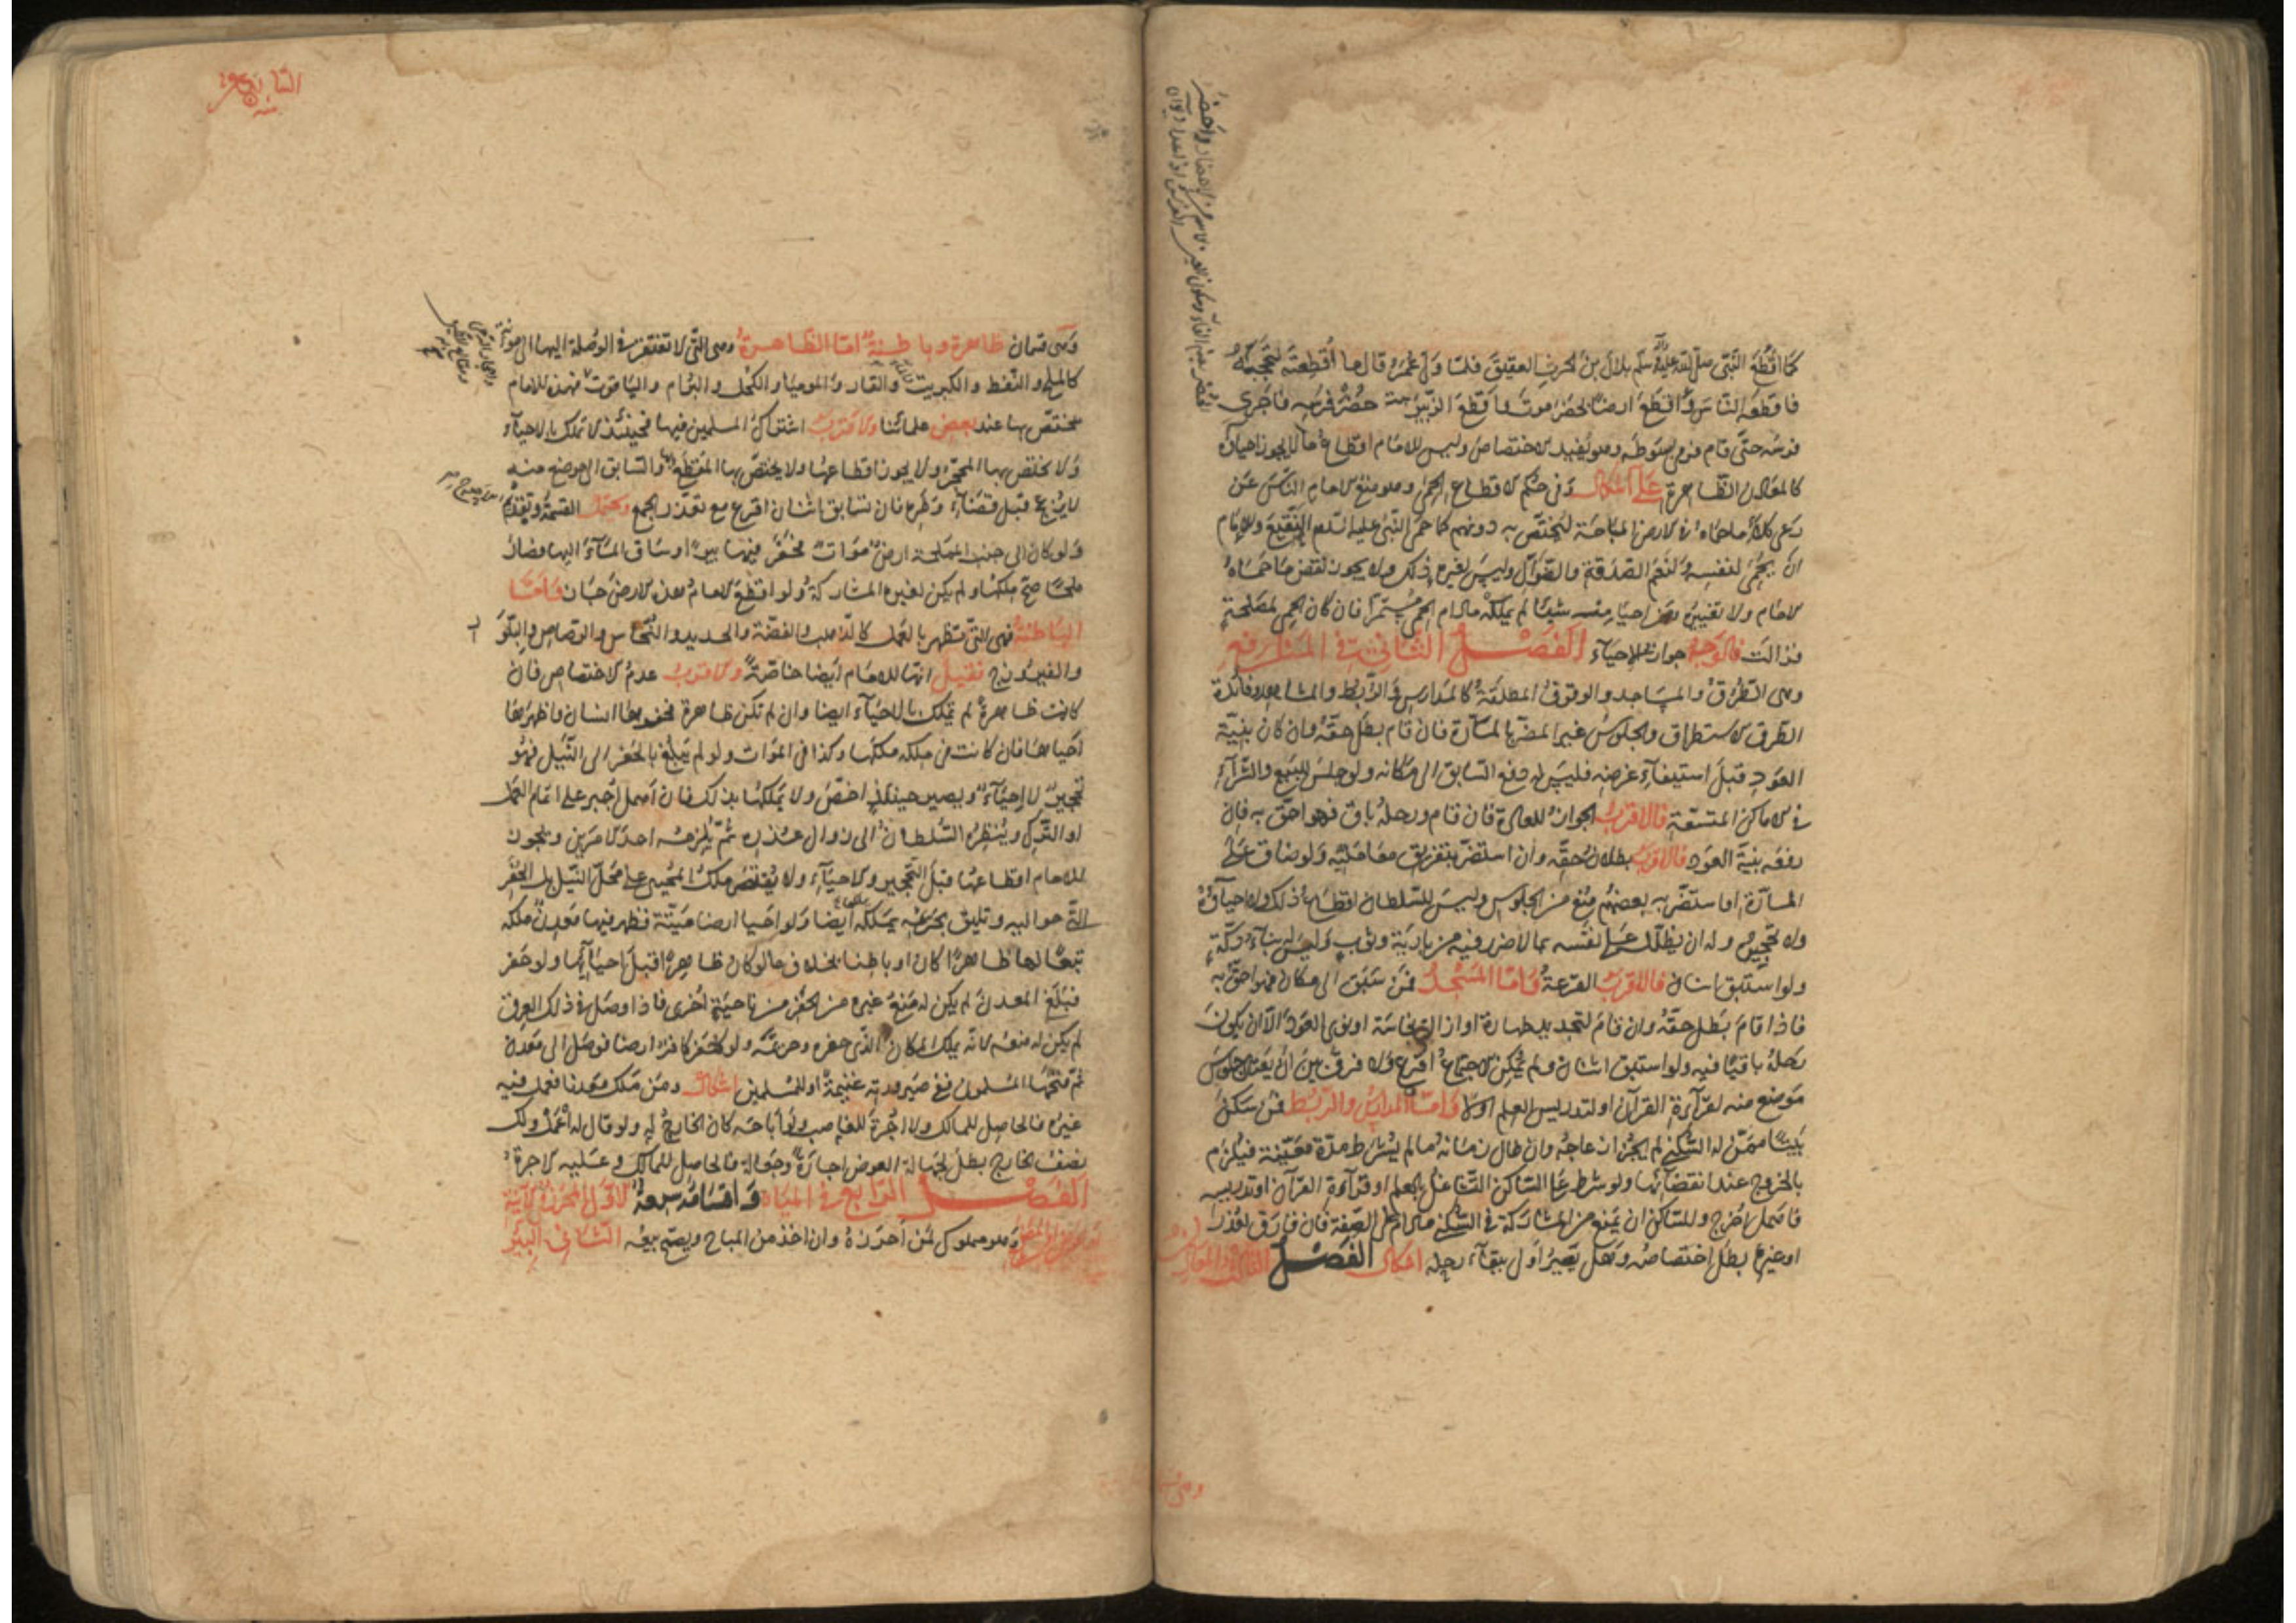 كما اقطع النبي صلى الله عليه وآله وسلم بلال بن الحرث العقيق فلما ولي عمر قال ما أقطعته لتحجبه
فاقطعه الناس واقطع ارضا بحضرموت واقطع الزبير حضر فرسه فاجرى
فرسه حتى قام فرمى بسوطه وهو يفيد الاختصاص وليس للامام اقطاع ما لا يجوز احياؤه
كالمعادن الظاهرة على اشكال وفي حكم الاقطاع الحمى وهو منع الامام الناس عن
رعى كلاء ما حماه في الارض المباحة ليختص به دونهم كما حمى النبي عليه السلم النقيع وللامام
ان يحمى لنفسه ولنعم الصدقة والضوال وليس لغيره ذلك ولا يجوز نقض ما حماه
الامام ولا تغييره ومن احيا منه شيئا لم يملكه مادام الحمى مستمرا فان كان الحمى لمصلحة
فزالت فالوجه جواز الاحياء الفصل الثاني في المنافع
وهي الطرق والمساجد والوقوف المطلقة كالمدارس والربط والمشاهد وفائدة
الطرق الاستطراق والجلوس غير المضر بالمارة فان قام بطل حقه وان كان بنية
العود قبل استيفاء غرضه فليس له دفع السابق الى مكانه ولو جلس للبيع والشراء
في الاماكن المتسعة فالاقرب الجواز للعادة فان قام ورحله باق فهو احق به فان
رفعه بنية العود فالاقرب بطلان حقه وان استضر بتفريق معامليه ولو ضاق على
المارة او استضر به بعضهم منع من الجلوس وليس للسلطان اقطاع ذلك ولا احياؤه
ولا تحجيره وله ان يظلل على نفسه بما لا ضرر فيه من بارية وثوب وليس له بناء دكة
ولو استبق اثنان فالاقرب القرعة واما المسجد فمن سبق الى مكان فهو احق به
فاذا قام بطل حقه وان قام لتجديد طهارة او ازالة نجاسة او نوى العود الا ان يكون
رحله باقيا فيه ولو استبق اثنان ولم يمكن الاجتماع اقرع ولا فرق بين ان يعتاد جلوس
موضع منه لقراءة القران او لتدريس العلم اولا واما المدارس والربط فمن سكن
بيتا ممن له السكنى لم يجز ازعاجه وان طال زمانه ما لم يشترط مدة معينة فيلزم
بالخروج عند انقضائها ولو شرط على الساكن التشاغل بالعلم او قراءة القرآن او تدريسه
فاهمل اخرج وللساكن ان يمنع من المشاركة في السكنى مادام على الصفة فان فارق لعذر
او غيره بطل اختصاصه وهل يصير اولى ببقاء رحله اشكال الفصل الثالث في المعادن
وهي قسمان ظاهرة وباطنة اما الظاهرة وهي التي لا تفتقر في الوصلة اليها الى مؤنة
كالملح والنفط والكبريت والقار والموميا والكحل والبرام والياقوت فهذه للامام
يختص بها عند بعض علمائنا والاقرب اشتراك المسلمين فيها فحينئذ لا تملك بالاحياء
ولا يختص بها المحجر ولا يجوز اقطاعها ولا يختص بها المقطع والسابق الى موضع منه
لا يزعج قبل قضاء وطره فان تسابق اثنان اقرع مع تعذر الجمع ويحتمل القسمة وتقديم
ولو كان الى جنب المملحة ارض موات يحفر فيها بئر او ساق الماء اليها وصار
ملحا صح ملكها ولم يكن لغيره المشاركة ولو اقطع الامام هذه الارض جاز فاما
الباطنة فهي التي تظهر بالعمل كالذهب والفضة والحديد والنحاس والرصاص والبلور
والفيروزج فقيل انها للامام ايضا خاصة والاقرب عدم الاختصاص فان
كانت ظاهرة لم تملك بالاحياء ايضا وان لم تكن ظاهرة فحفرها انسان واظهرها
احياها فان كانت في ملكه ملكها وكذا في الموات ولو لم يبلغ بالحفر الى النيل فهو
تحجير لا احياء ويصير حينئذ اخص ولا يملكها بذلك فان اهمل اجبر على اتمام العمل
او الترك وينظره السلطان الى زوال عذره ثم يلزمه احد الامرين ويجوز
للامام اقطاعها قبل التحجير والاحياء ولا يقتصر ملك المحيي على محل النيل بل الحفر
التي حواليه وتليق بحريمه يملكه ايضا ولو احيا ارضا ميتة فظهر فيها معدن ملكه
تبعا لها ظاهرا كان او باطنا بخلاف ما لو كان ظاهرا قبل احيائها ولو حفر
فبلغ المعدن لم يكن له منع غيره من الحفر من ناحية اخرى فاذا وصل الى ذلك العرق
لم يكن له منعه لانه يملك المكان الذي حفره وحريمه ولو حفر كافر ارضا فوصل الى معدن
ثم فتحها المسلمون ففي صيرورته غنيمة او للمسلمين اشكال ومن ملك معدنا فعمل فيه
غيره فالحاصل للمالك ولا اجرة للغاصب ولو اباحه كان الخارج له ولو قال له اعمل ولك
نصف الخارج بطل لجهالة العوض اجارة وجعالة فالحاصل للمالك وعليه الاجرة
الفصل الرابع في المياه واقسامه سبعة الاول المحرز في الآنية
وهو مملوك لمن احرزه وان اخذ من المباح ويصح بيعه الثاني البئر